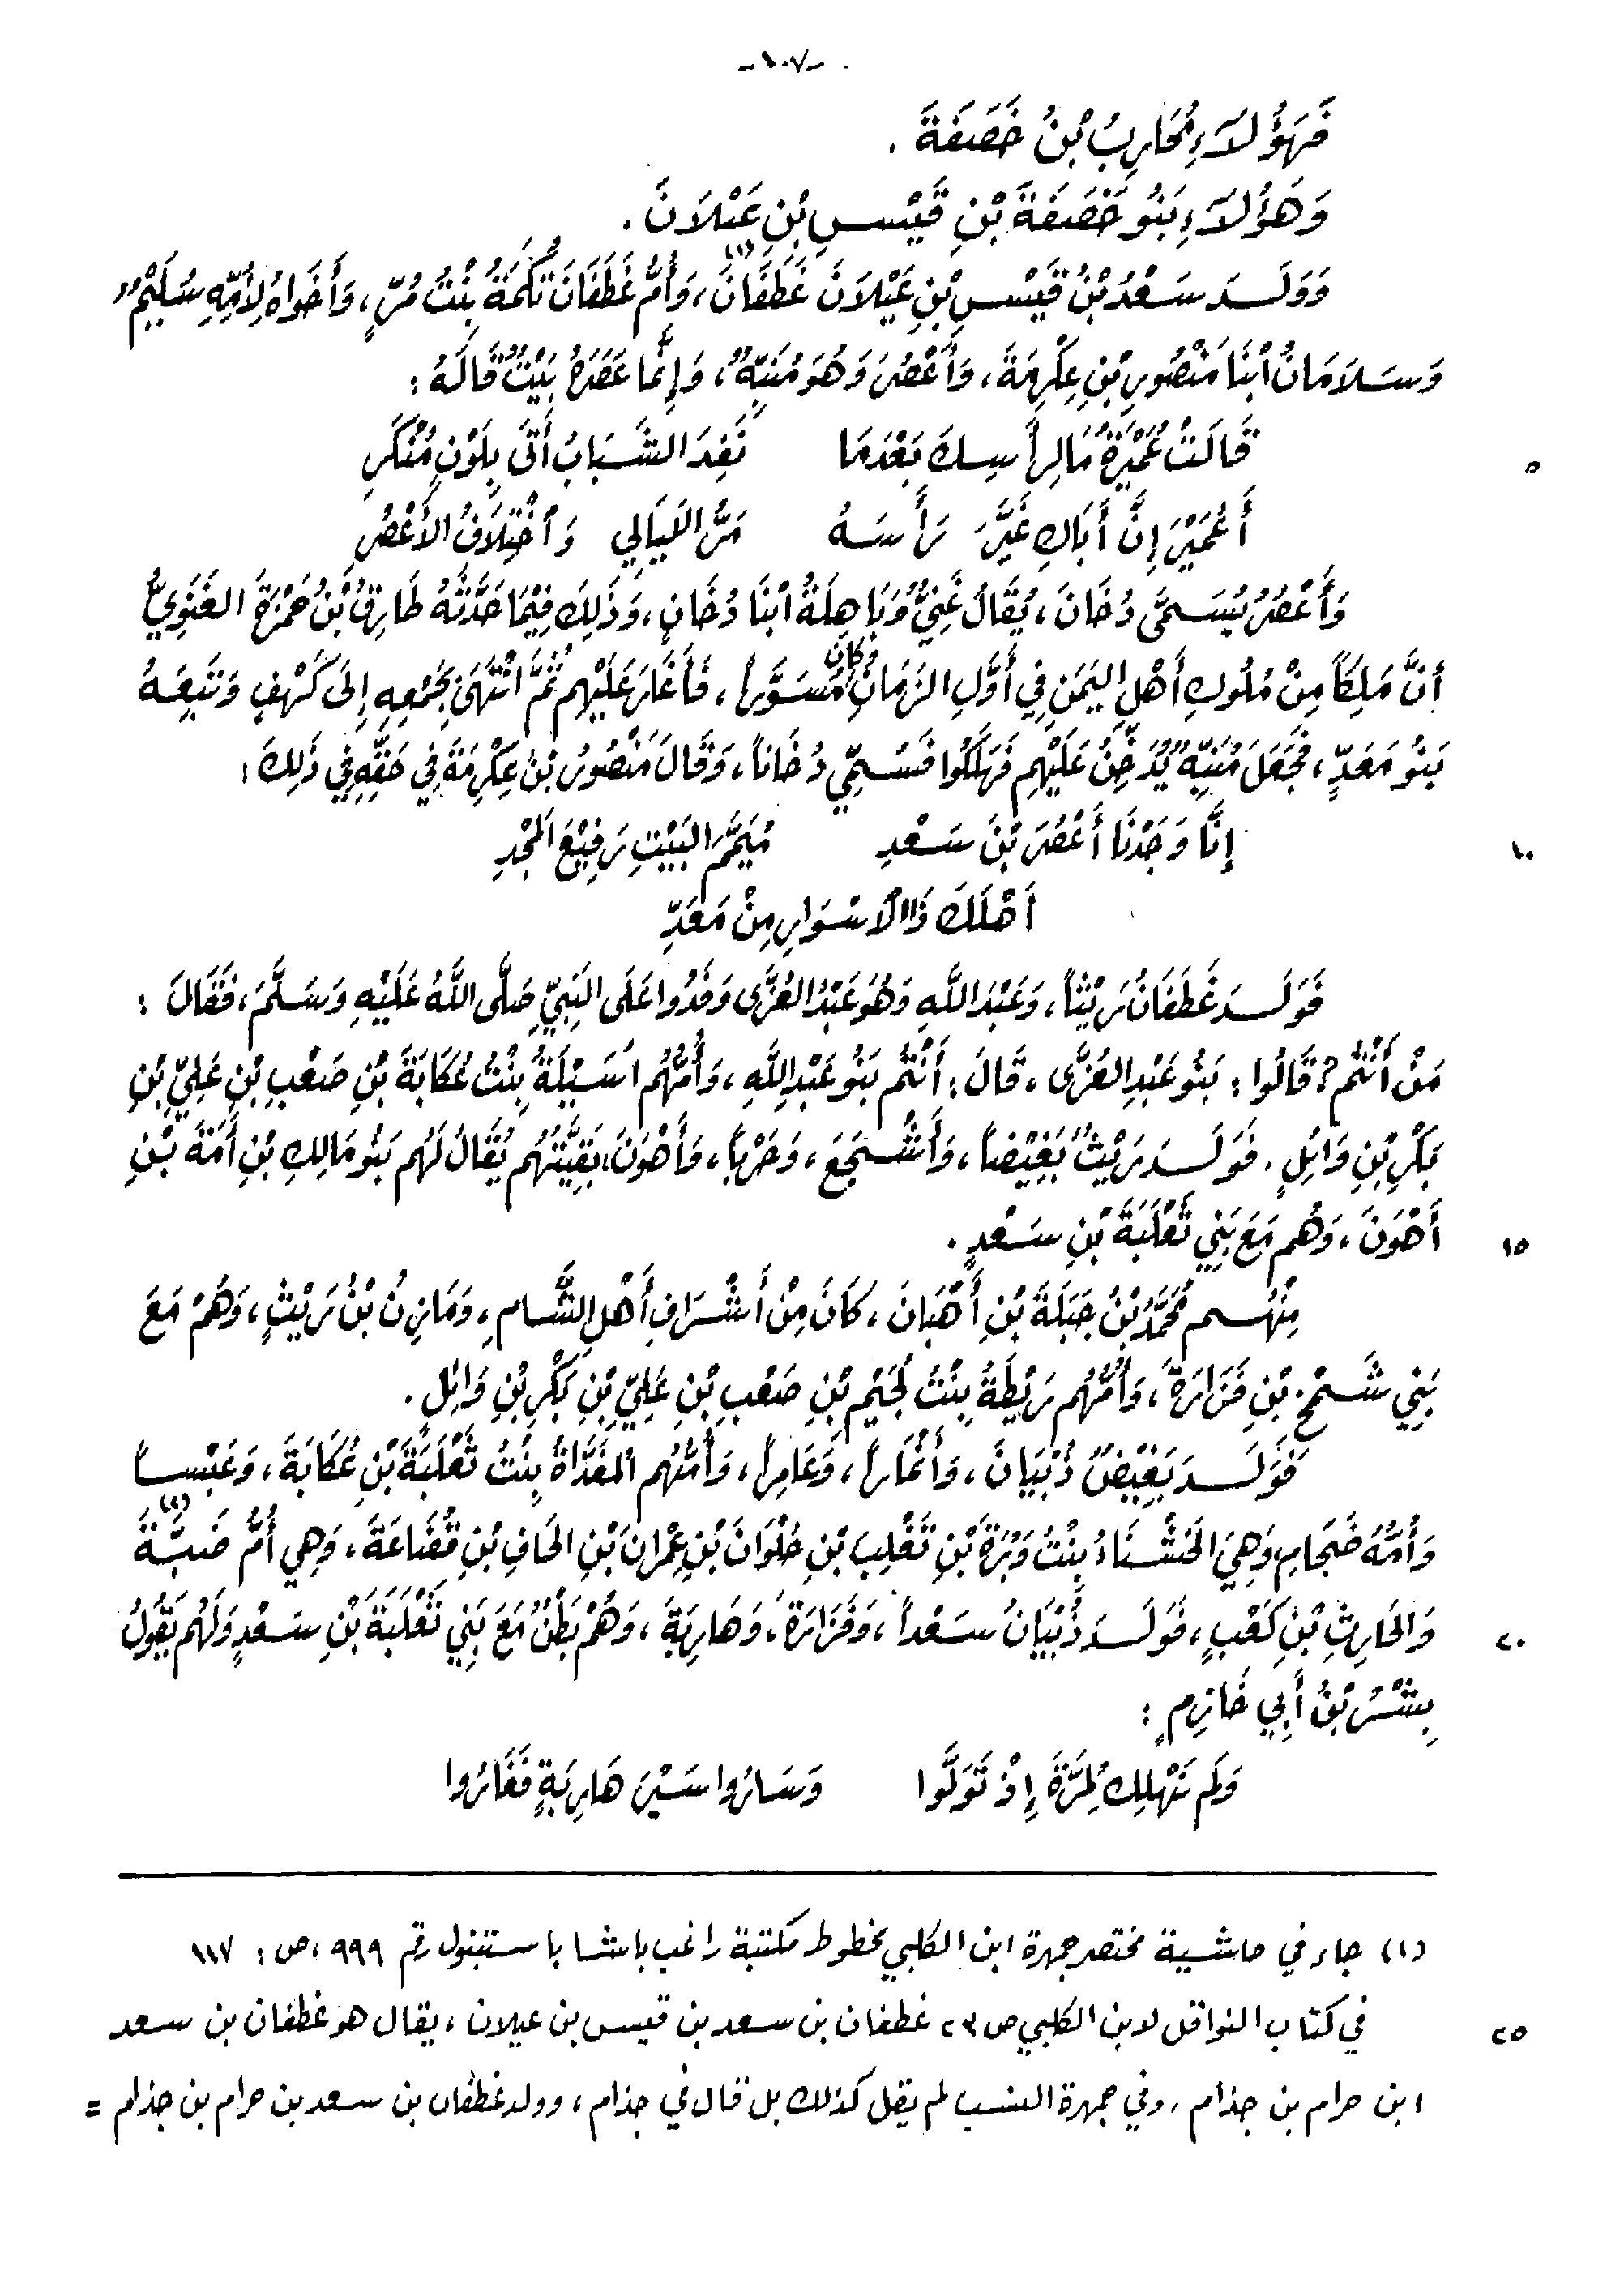 -١٠٧-
فَهَؤُلَاءِ مُحَارِبُ بْنُ خَصَفَةَ .
وَهَؤُلَاءِ بَنُو خَصَفَةَ بْنِ قَيْسِ بْنِ عَيْلَانَ .
وَوَلَدَ سَعْدُ بْنُ قَيْسِ بْنِ عَيْلَانَ غَطَفَانَ(١)، وَأُمُّ غَطَفَانَ تُكْمَةُ بِنْتُ مُرٍّ، وَأَخَوَاهُ لِأُمِّهِ سُلَيْمٌ
وَسَلَامَانُ ابْنَا مَنْصُورِ بْنِ عِكْرِمَةَ، وَأَعْصُرَ وَهُوَ مُنَبِّهٌ، وَإِنَّمَا عَصَرَهُ بَيْتٌ قَالَهُ :
قَالَتْ عُمَيْرَةُ مَا لِرَأْسِكَ بَعْدَمَا نَفِدَ الشَّبَابُ أَتَى بِلَوْنٍ مُنْكَرِ
٥
أَعُمَيْرَ إِنَّ أَبَاكِ غَيَّرَ رَأْسَهُ مَرُّ اللَّيَالِي وَاخْتِلَافُ الأَعْصُرِ
وَأَعْصُرُ يُسَمَّى دُخَانَ، يُقَالُ غَنِيٌّ وَبَاهِلَةُ ابْنَا دُخَانٍ، وَذَلِكَ فِيْمَا حَدَّثَهُ طَارِقُ بْنُ حَمْزَةَ الغَنَوِيُّ
أَنَّ مَلِكاً مِنْ مُلُوكِ أَهْلِ اليَمَنِ فِي أَوَّلِ الزَّمَانِ وَكَانَ مُسَوَّراً، فَأَغَارَ عَلَيْهِم ثُمَّ انْتَهَى بِجَمْعِهِ إِلَى كَهْفٍ وَتَبِعَهُ
بَنُو مَعَدٍّ، فَجَعَلَ مُنَبِّهٌ يُدَخِّنُ عَلَيْهِم فَهَلَكُوا فَسُمِّيَ دُخَاناً، وَقَالَ مَنْصُورُ بْنُ عِكْرِمَةَ فِي حَقِّهِ فِي ذَلِكَ :
إِنَّا وَجَدْنَا أَعْصُرَ بْنَ سَعْدِ مُيَمَّمَ البَيْتِ رَفِيْعَ المَجْدِ
١٠
أَهْلَكَ ذَا الأَسْوَارِ مِنْ مَعَدِّ
فَوَلَدَ غَطَفَانُ رَيْثاً، وَعَبْدَ اللَّهِ وَهُوَ عَبْدُ العُزَّى وَفَدُوا عَلَى النَبِيِّ صَلَّى اللَّهُ عَلَيْهِ وَسَلَّمَ، فَقَالَ :
مَنْ أَنْتُم؟ قَالُوا : بَنُو عَبْدِ العُزَّى، قَالَ : أَنْتُم بَنُو عَبْدِ اللَّهِ، وَأُمُّهُم أَسَيْلَةُ بِنْتُ عُكَابَةَ بْنِ صَعْبِ بْنِ عَلِيِّ بْنِ
بَكْرِ بْنِ وَائِلٍ . فَوَلَدَ رَيْثٌ بَغِيْضاً، وَأَشْجَعَ، وَحَرْباً، وَأَهْوَنَ، بَقِيَّتُهُم يُقَالُ لَهُم بَنُو مَالِكِ بْنِ أَمَةَ بْنِ
أَهْوَنَ، وَهُم مَعَ بَنِي ثَعْلَبَةَ بْنِ سَعْدٍ .
١٥
مِنْهُم مُحَمَّدُ بْنُ جَبَلَةَ بْنِ أَهْبَانَ، كَانَ مِنْ أَشْرَافِ أَهْلِ الشَّامِ، وَمَازِنُ بْنُ رَيْثٍ، وَهُمْ مَعَ
بَنِي شَمْخِ بْنِ فَزَارَةَ، وَأُمُّهُم رَيْطَةُ بِنْتُ لُجَيْمِ بْنِ صَعْبِ بْنِ عَلِيِّ بْنِ بَكْرِ بْنِ وَائِلٍ .
فَوَلَدَ بَغِيْضٌ ذُبْيَانَ، وَأَنْمَاراً، وَعَامِراً، وَأُمُّهُم المُفَدَّاةُ بِنْتُ ثَعْلَبَةَ بْنِ عُكَابَةَ، وَعَبْساً
وَأُمُّهُ ضَجَامِ وَهِيَ الخَشْنَاءُ بِنْتُ وَبْرَةَ بْنِ تَغْلِبَ بْنِ حُلْوَانَ بْنِ عِمْرَانَ بْنِ الحَافِ بْنِ قُضَاعَةَ، وَهِي أُمُّ ضَبَّةَ(٢)
وَالحَارِثِ بْنِ كَعْبٍ، فَوَلَدَ ذُبْيَانُ سَعْداً، وَفَزَارَةَ، وَهَارِبَةَ، وَهُمْ بَطْنٌ مَعَ بَنِي ثَعْلَبَةَ بْنِ سَعْدٍ وَلَهُم يَقُولُ
٢٠
بِشْرُ بْنُ أَبِي خَازِمٍ :
وَلَم نَهْلِكْ لِمُرَّةَ إِذْ تَوَلَّوا وَسَارُوا سَيْرَ هَارِبَةٍ فَغَارُوا
(١) جاء في حاشية مختصر جمهرة ابن الكلبي مخطوط مكتبة راغب باشا باستنبول رقم ٩٩٩ ،ص : ١١٧
في كتاب النواقل لابن الكلبي ص ٢٣ غطفان بن سعد بن قيس بن عيلان، يقال هو غطفان بن سعد
٢٥
ابن حرام بن جذام، وفي جمهرة النسب لم يقل كذلك بل قال في جذام، وولد غطفان بن سعد بن حرام بن جذام =